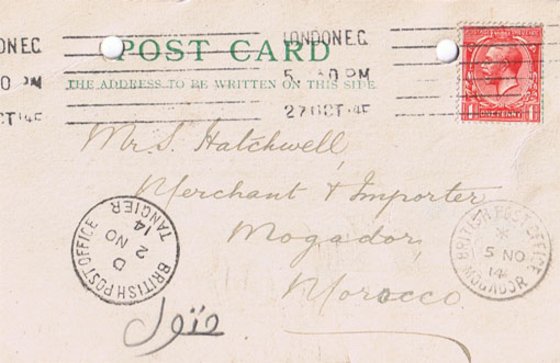 LONDON E.C.
5 30 PM
27 OCT 14
POST CARD
THE ADDRESS TO BE WRITTEN ON THIS SIDE
ONE PENNY
Mr S. Hatchwell,
Merchant & Importer
Mogador,
Morocco.
BRITISH POST OFFICE
D
2 NO
14
TANGIER
BRITISH POST OFFICE
5 NO
14
MOGADOR